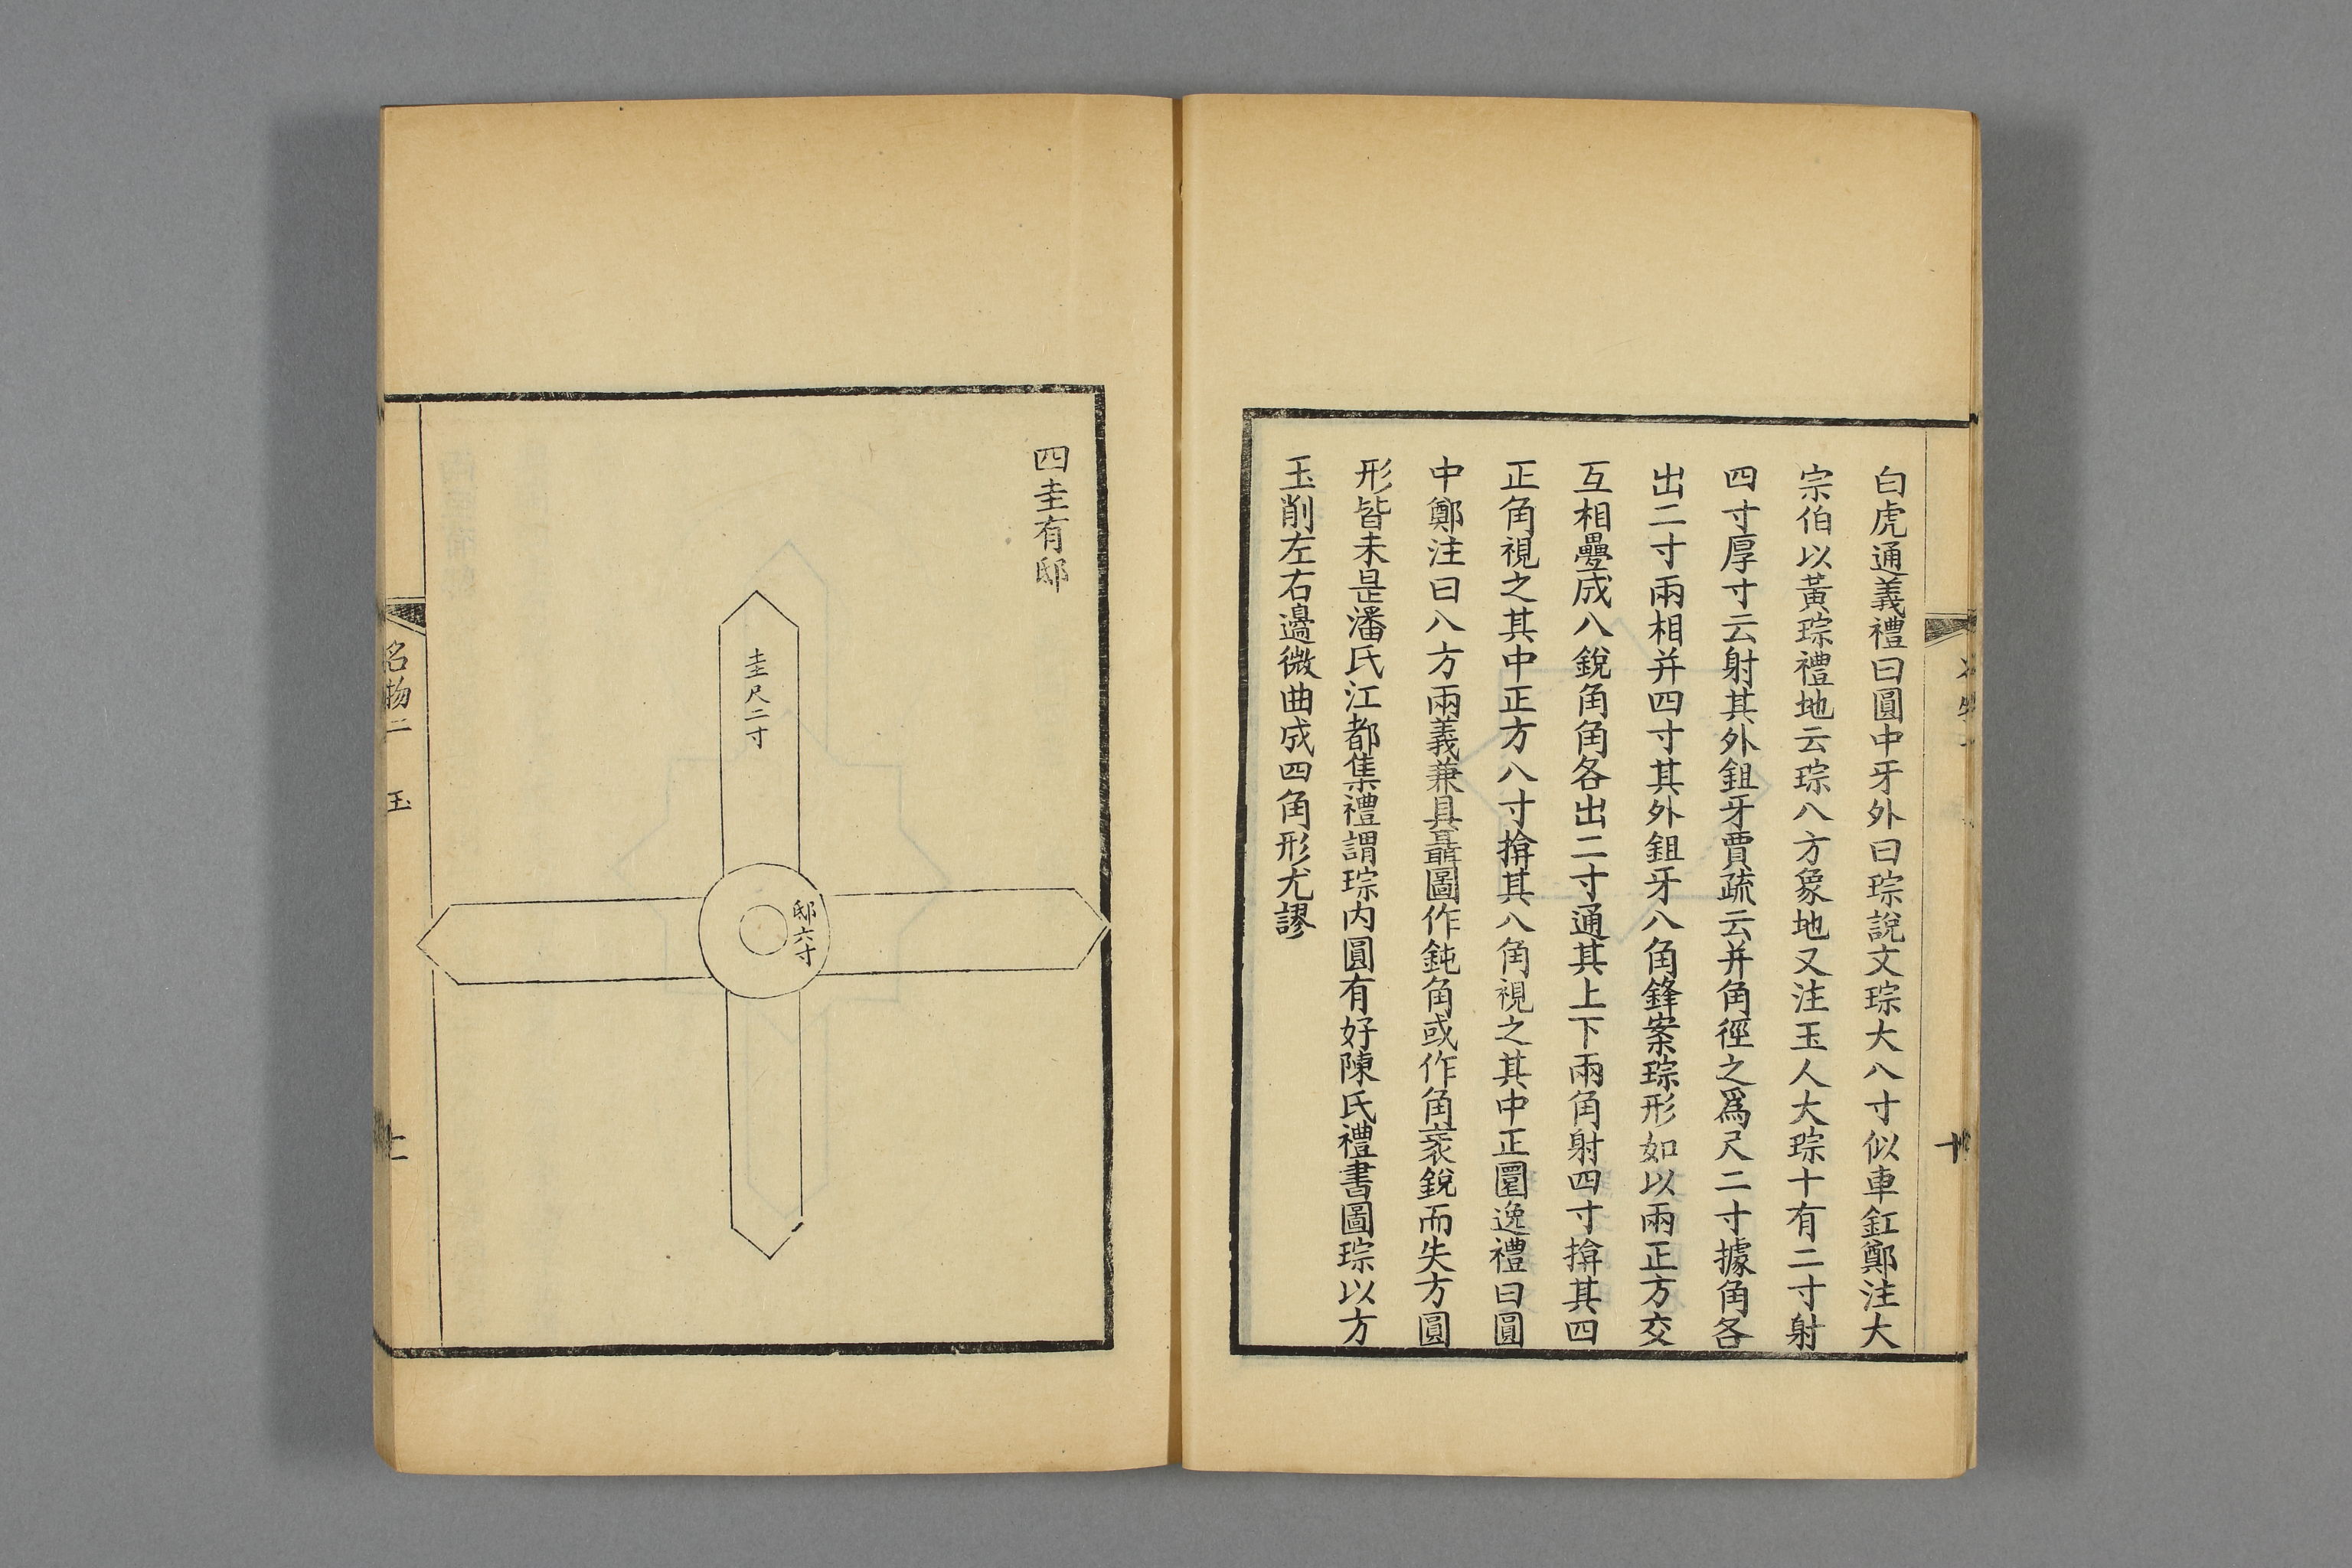 白虎通義禮曰圓中牙外曰琮說文琮大八寸似車釭鄭注大
宗伯以黃琮禮地云琮八方象地又注玉人大琮十有二寸射
四寸厚寸云射其外鉏牙賈疏云并角徑之爲尺二寸據角各
出二寸兩相并四寸其外鉏牙八角鋒案琮形如以兩正方交
互相疊成八銳角角各出二寸通其上下兩角射四寸揜其四
正角視之其中正方八寸揜其八角視之其中正圜逸禮曰圓
中鄭注曰八方兩義兼具聶圖作鈍角或作角衺銳而失方圓
形皆未是潘氏江都集禮謂琮內圓有好陳氏禮書圖琮以方
玉削左右邊微曲成四角形尤謬
四圭有邸
圭尺二寸
邸六寸
名物二
玉